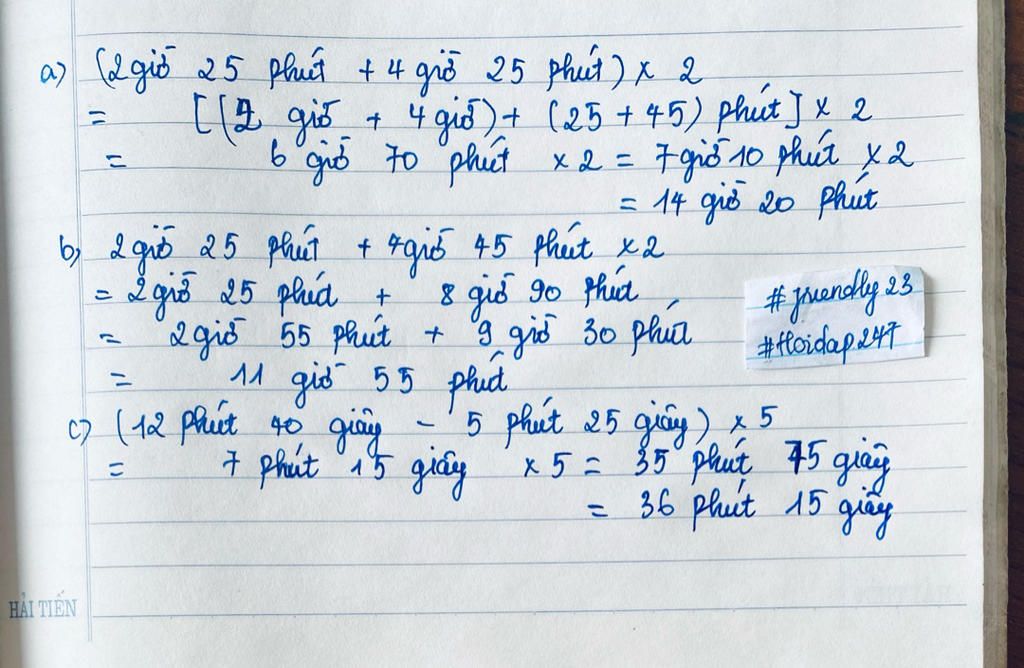 a) (2 giờ 25 phút + 4 giờ 25 phút) x 2
= [(2 giờ + 4 giờ) + (25 + 45) phút] x 2
= 6 giờ 70 phút x 2 = 7 giờ 10 phút x 2
= 14 giờ 20 phút
b) 2 giờ 25 phút + 4 giờ 45 phút x 2
= 2 giờ 25 phút + 8 giờ 90 phút
= 2 giờ 55 phút + 9 giờ 30 phút
= 11 giờ 55 phút
#friendly23
#Hoidap247
c) (12 phút 40 giây - 5 phút 25 giây) x 5
= 7 phút 15 giây x 5 = 35 phút 75 giây
= 36 phút 15 giây
HẢI TIẾN